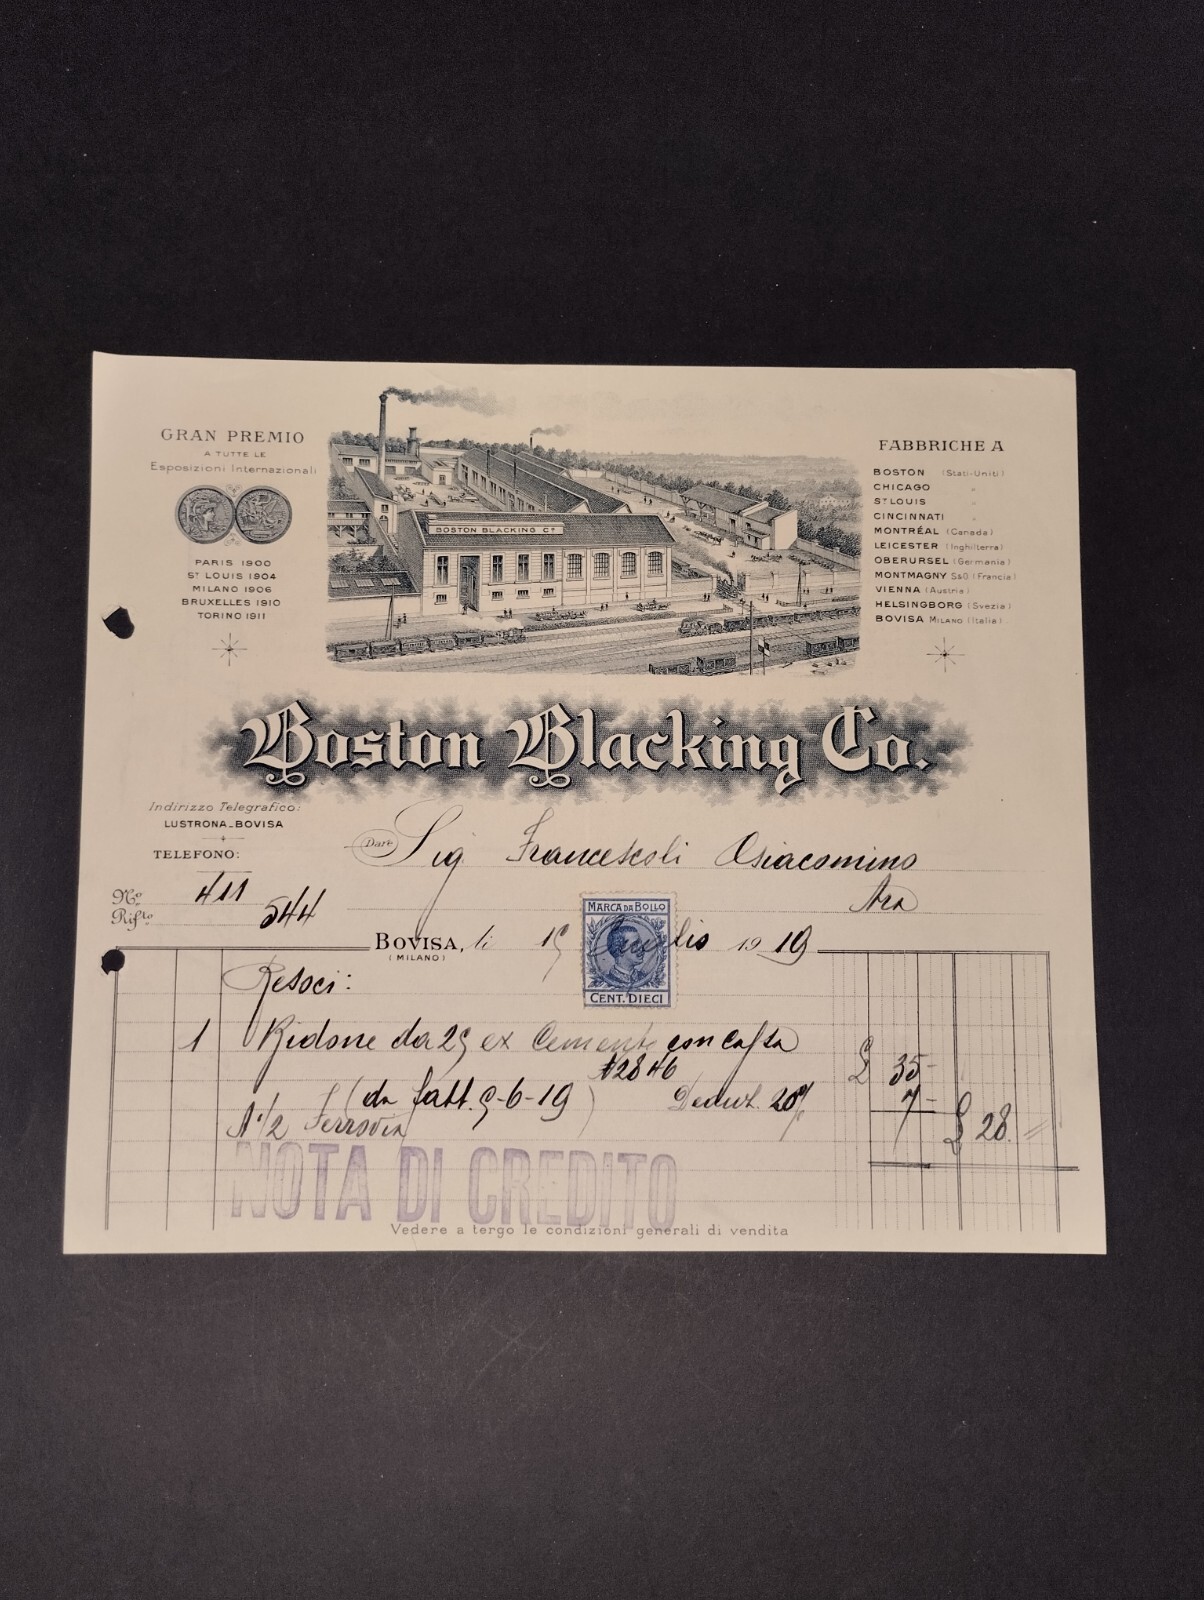 GRAN PREMIO
A TUTTE LE
Esposizioni Internazionali
PARIS 1900
ST LOUIS 1904
MILANO 1906
BRUXELLES 1910
TORINO 1911
BOSTON BLACKING Co
FABBRICHE A
BOSTON (Stati-Uniti)
CHICAGO "
ST LOUIS "
CINCINNATI "
MONTRÉAL (Canada)
LEICESTER (Inghilterra)
OBERURSEL (Germania)
MONTMAGNY S&O (Francia)
VIENNA (Austria)
HELSINGBORG (Svezia)
BOVISA MILANO (Italia)
Boston Blacking Co.
Indirizzo Telegrafico:
LUSTRONA-BOVISA
TELEFONO:
Dare Sig. Francescoli
No 411
Rifto 544
MARCA DA BOLLO
CENT. DIECI
BOVISA, li 15 1919
(MILANO)
Resoci:
1 Bidone da 25 ex Cemento con cassa
#2846 £ 35-
(da fatt. 5-6-19) Deduz. 20% 7-
N. 1/2 Ferrovia £ 28.
NOTA DI CREDITO
Vedere a tergo le condizioni generali di vendita